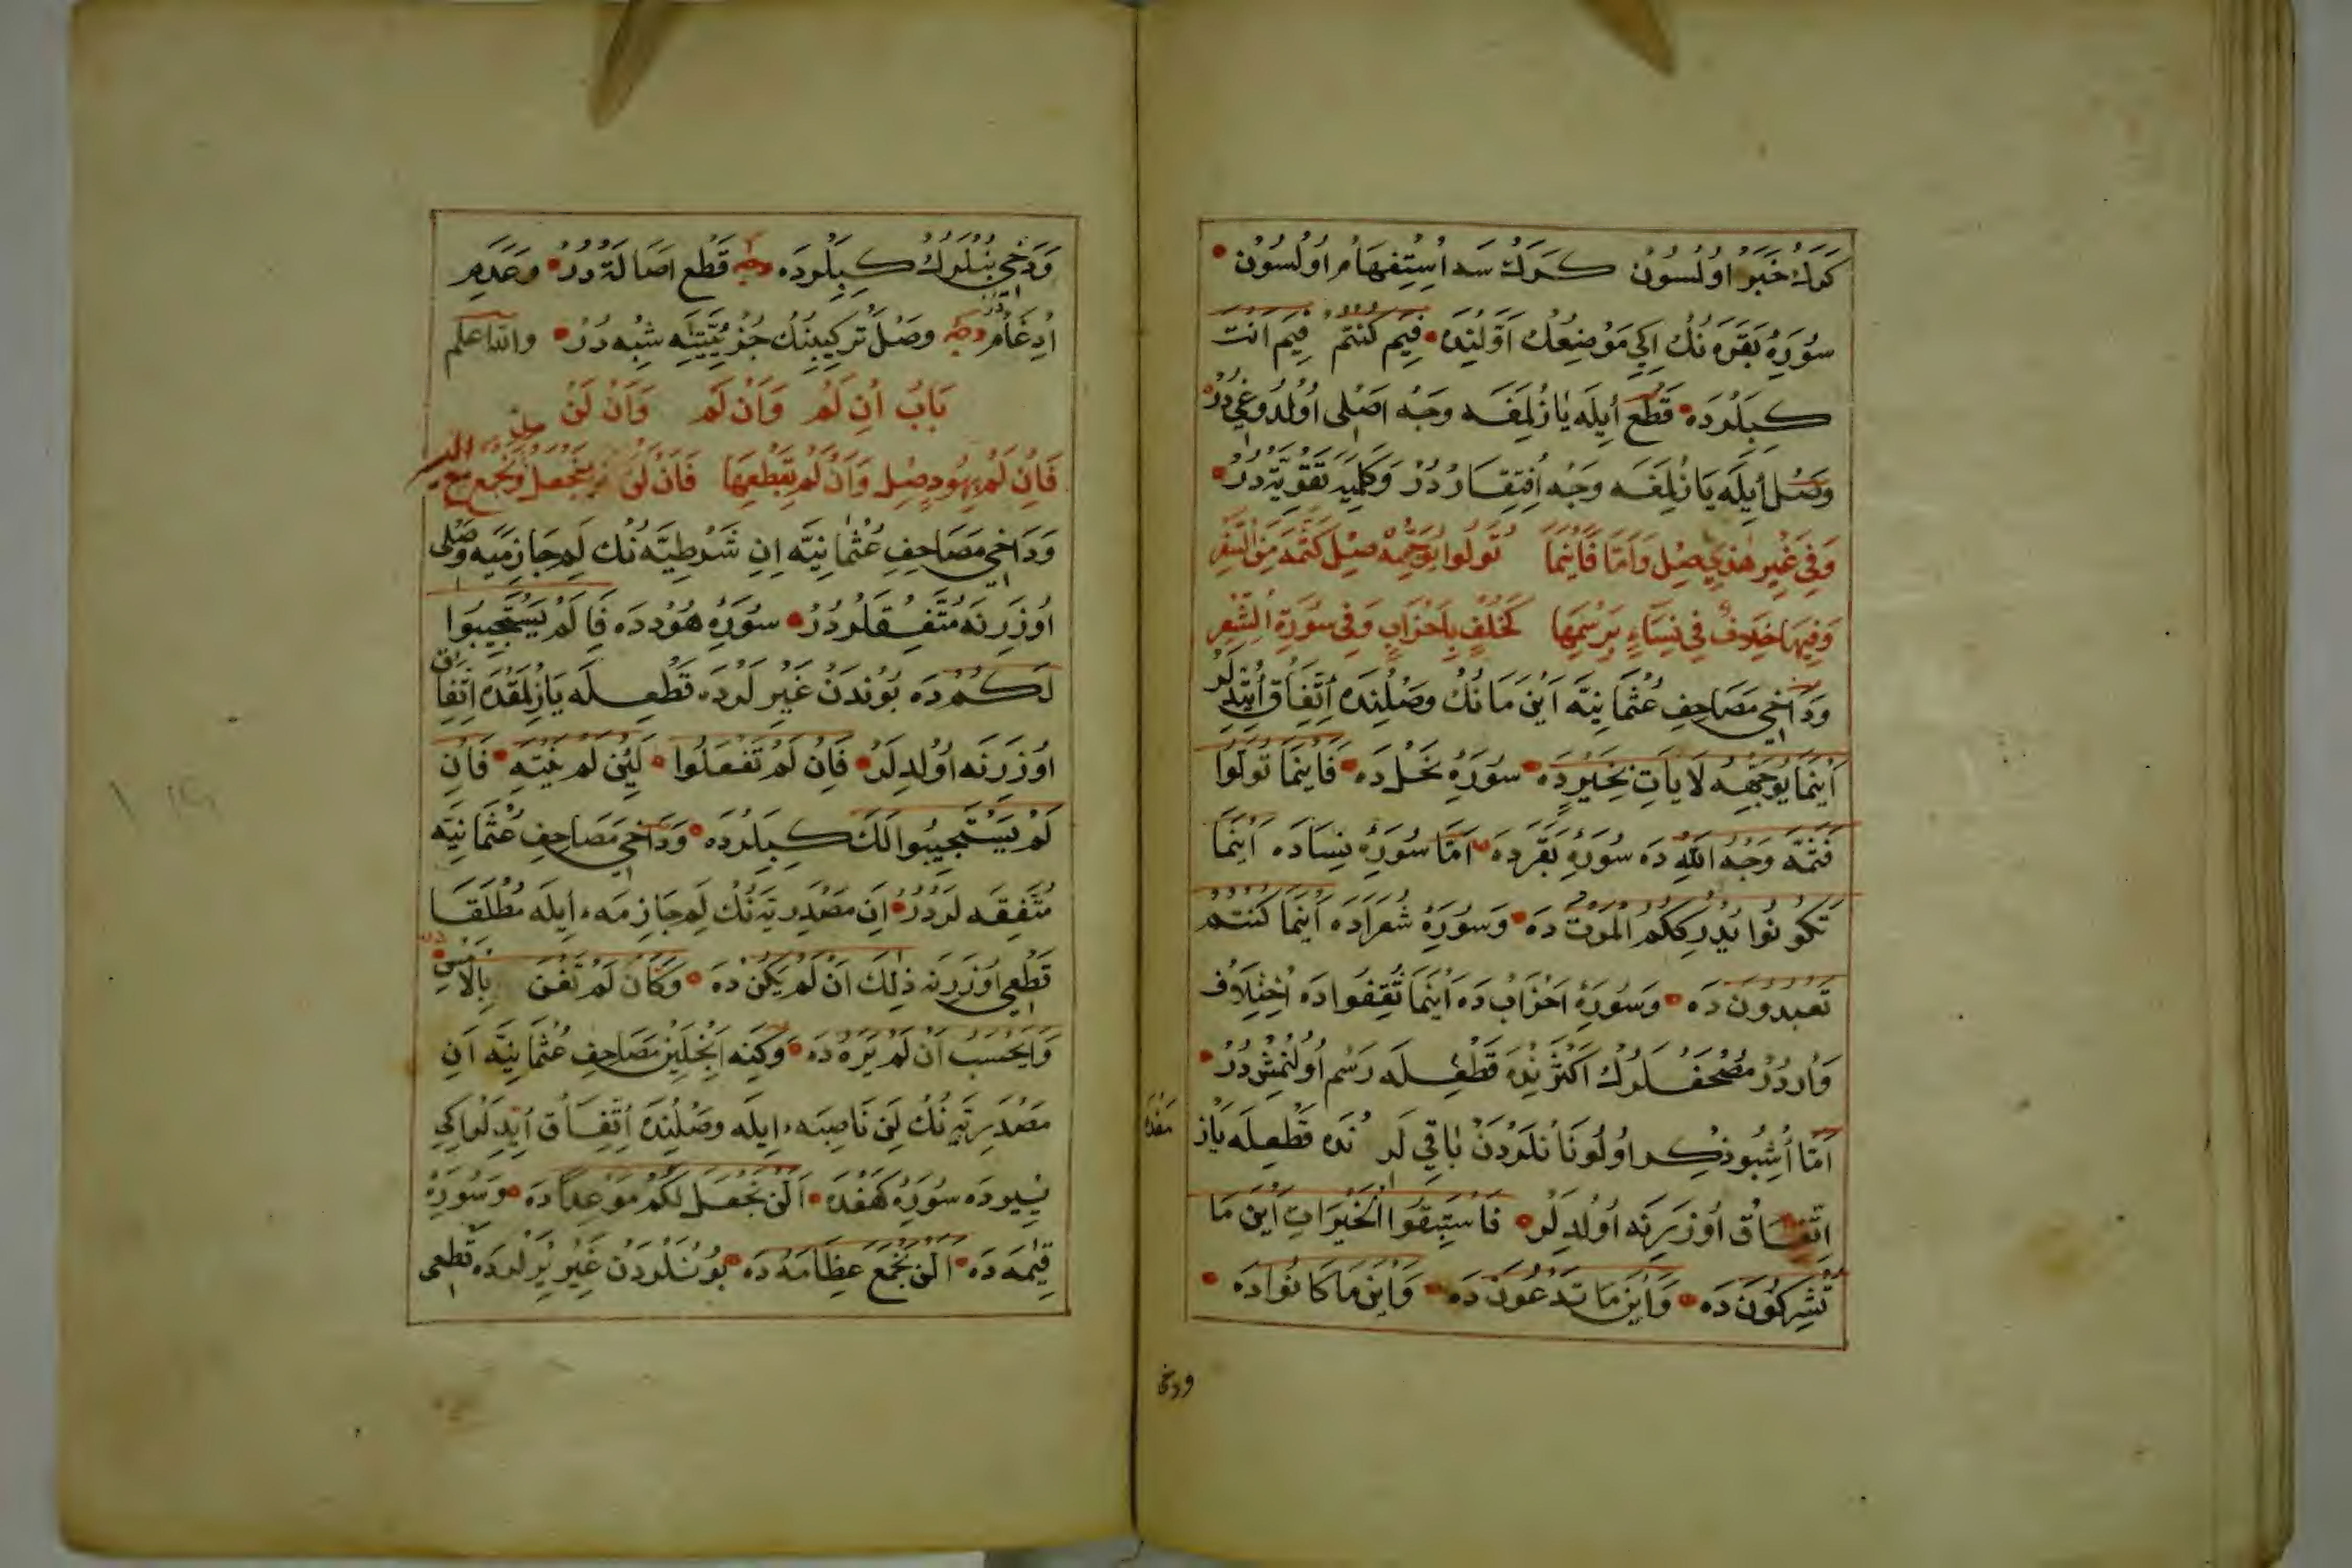 كرك خبر اولسون كرك سه استفهام اولسون
سورهٔ بقره نك ايكي موضعنك اولنده فيم كنتم فيم انت
كبيلرده قطع ايله يازلمغه وجه اصلى اولدوغيدر
وصل ايله يازلمغه وجه افتقاردر وكلميه تقويتدر
وفي غير هذي صل واما فاينما تولوا يوجهه صل كثمه من السفر
وفيها خلاف في نساء برسمها كخلف باحزاب وفي سورة الشعر
ودخي مصاحف عثمانيه اين مانك وصلنده اتفاق ايتديلر
اينما يوجهه لا يات بخيرده سورهٔ نحلده فاينما تولوا
فثمه وجه الله ده سورهٔ بقرده اما سورهٔ نساده اينما
تكونوا يدرككم الموت ده وسورهٔ شعراده اينما كنتم
تعبدون ده وسورهٔ احزاب ده اينما ثقفوا ده اختلاف
واردر مصحفلرك اكثرنده قطعله رسم اولنمشدر
اما اشبو ذكر اولونانلردن باقي لرنده قطعله ياز
مقده
اتفاق اوزرينه اولديلر فاستبقوا الخيرات اين ما
تشركون ده واين ما تدعون ده واين ما كانوا ده
ودخي
ودخي بنلرك كبيلرده وجه قطع اصالتدر وعدم
ادغامدر وجه وصل تركيبنك جزئيتنه شبهدر والله اعلم
باب ان لم وان لم وان لن
فان لم بهود صل وان لم تقطعها فان لن نجعل ونجمع مع
ودخي مصاحف عثمانيه ان شرطيه نك لم جازميه وصلى
اوزرنه متفقلردر سورهٔ هودده فا لم يستجيبوا
لكم ده بوندن غيرلرده قطعله يازلمقده اتفاق
اوزرنه اولديلر فان لم تفعلوا لئن لم ينته فان
لم يستجيبوا لك كبيلرده ودخي مصاحف عثمانيه
متفقه لردر ان مصدريه نك لم جازمه ايله مطلقا
قطعي اوزرنه ذلك ان لم يكن ده وكان لم تغن بالامس
وايحسب ان لم يره ده وكنه انجلين مصاحف عثمانيه ان
مصدريه نك لن ناصبه ايله وصلنده اتفاق ايتديلر ايكي
يرده سورهٔ كهفده الن نجعل لكم موعدا ده وسورهٔ
قيمه ده الن نجمع عظامه ده بونلردن غير يرلرده قطعى